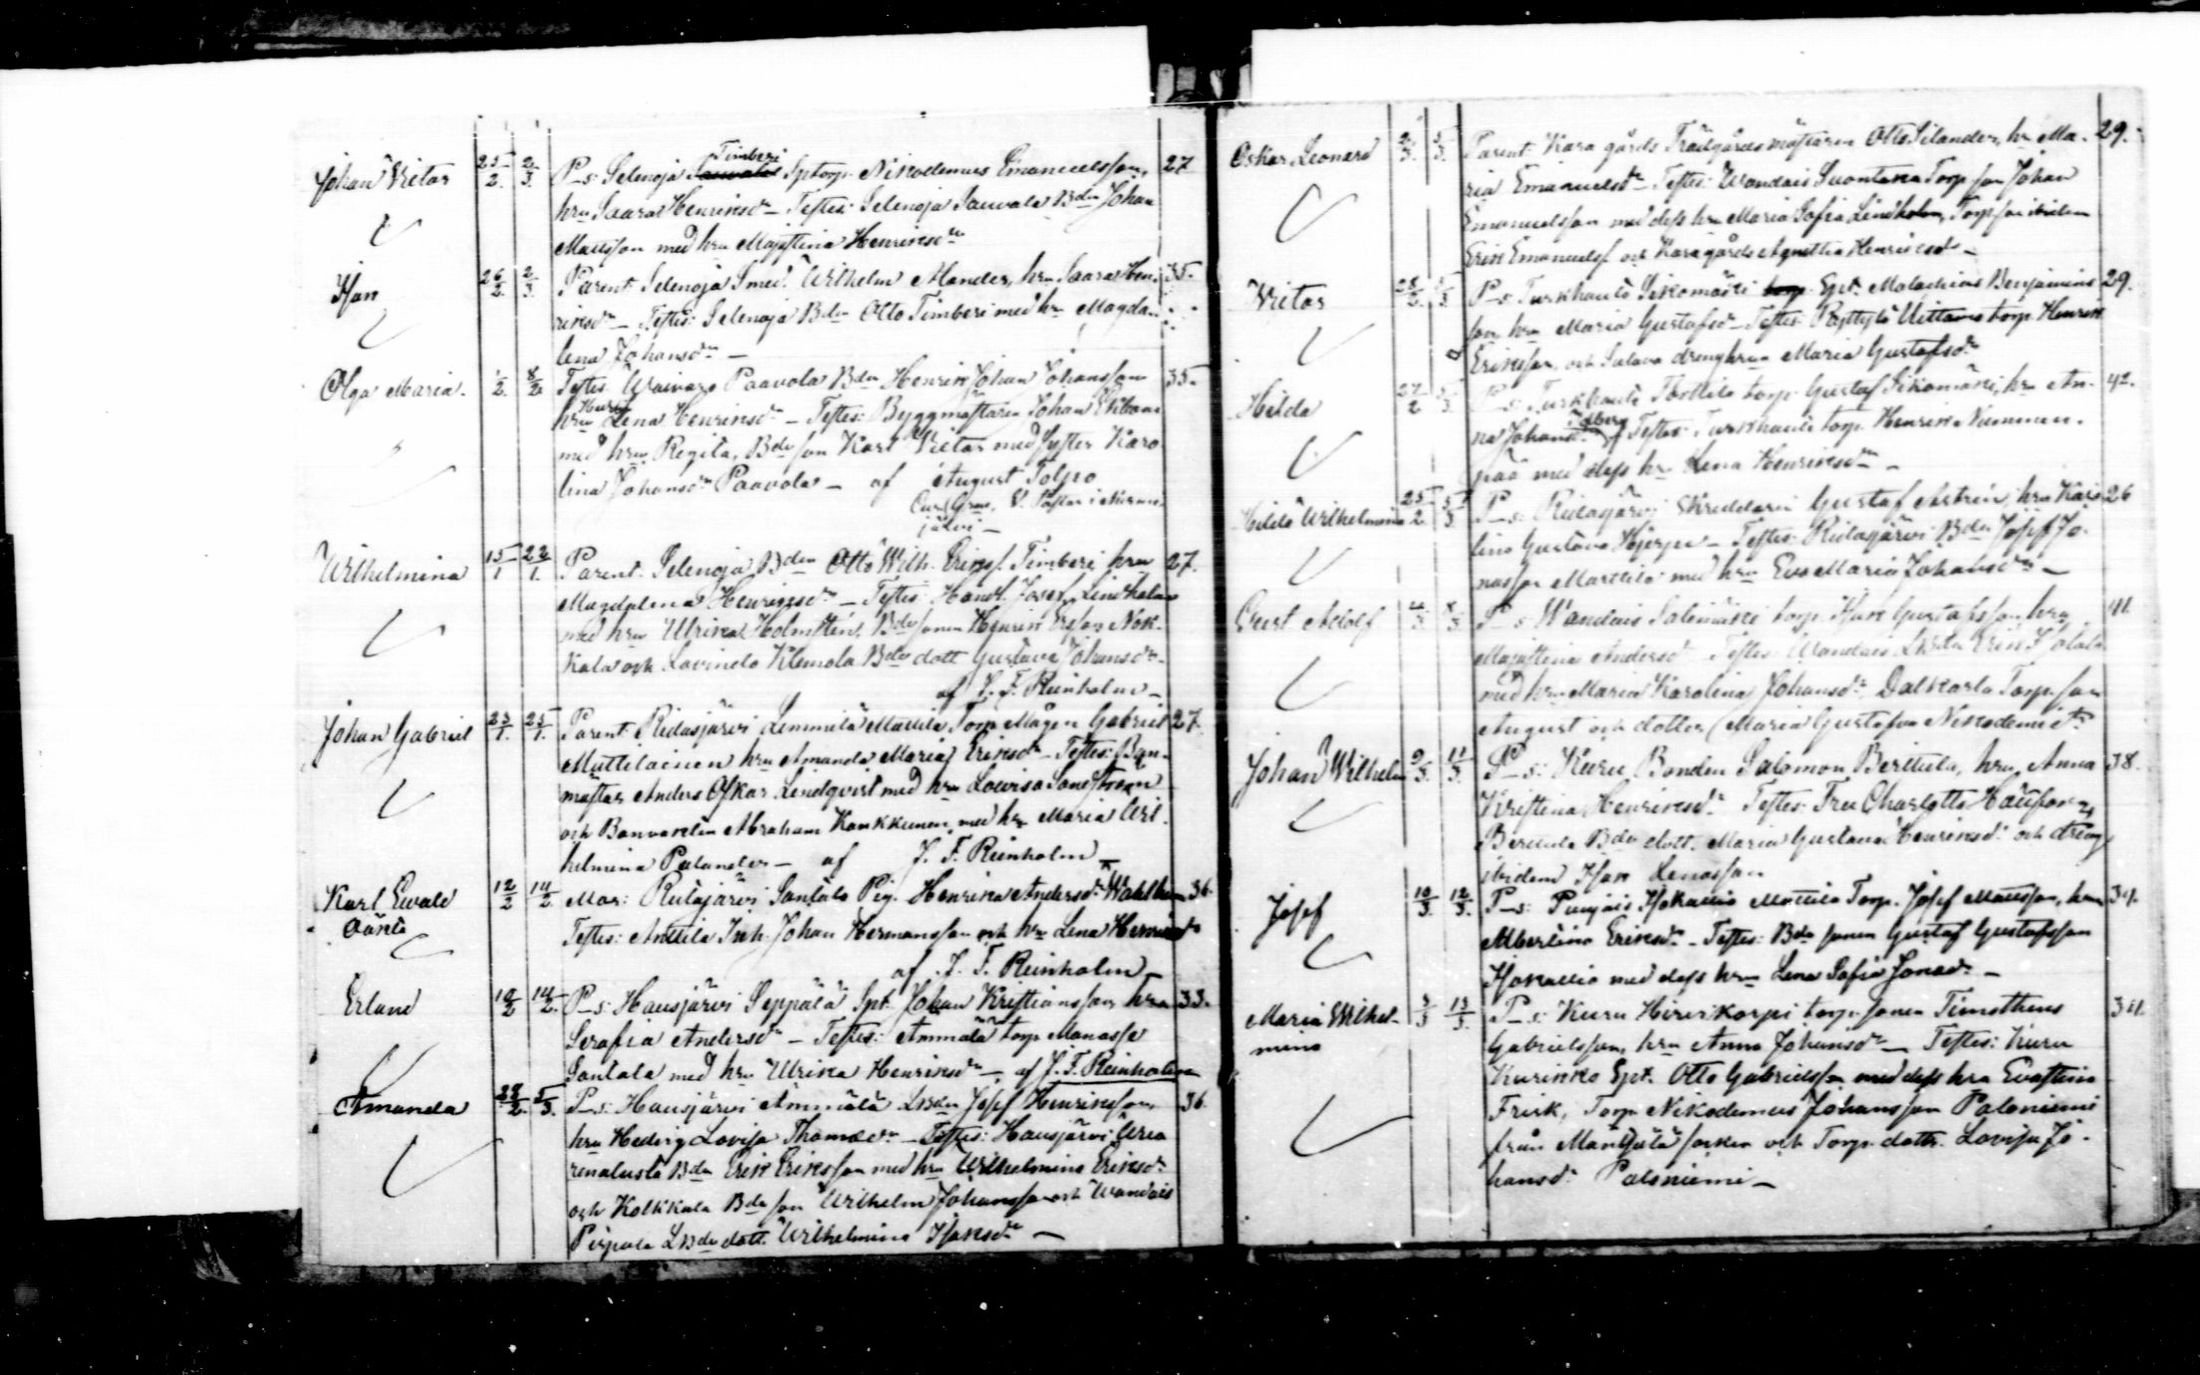 Johan Victor 25/2 2/3 P_s: Selenoja Timberi Sauvala Sptorp. Nikodemus Emanuelsson, 27
hru Saara Henriksdr _ Testes: Selenoja Sauvala Bdn Johan
Mattsson med hru Majastina Henriksdr
Isak 26/2 2/3 Parent. Selenoja Smed. Wilhelm Mander, hru Saara Hen- 35.
riksdr _ Testes: Selenoja Bdn Otto Timberi med hr Magda-
lena Johansdr _
Olga Maria. 1/2 8/2 Paavola Bdn Henrik Johan Johansson 35.
hru Lena Henriksdr _ Testes: Byggmästaren Johan Ekbom
med hru Regila, Bde son Karl Victor med syster Karo
lina Johansdr Paavola _ af August Tolpo
V. Pastor i
järvi _
Wilhelmina 15/1 22/1 Parent. Selenoja Bden Otto Wilh. Erikss. Timberi hru 27.
Magdalena Henriksdr _ Testes: Handl. Josef Lindholm
med hru Ulrika Holmsten, Bde sonen Henrik Erland Nok-
kala och Lavinda Klemola Bde dott Gustava Johansdr _
af J. F. Reinholm _
Johan Gabriel 23/1 25/1 Parent. Ridasjärvi Lemmilä Mattila Torp. Mågen Gabriel 27.
Muttilainen hru Amanda Maria Eriksdr _ Testes: Ban-
mästar Anders Oskar Lindqvist med hru Lovisa Sandström
och Banvakten Abraham Kankkunen med hr Maria Wil-
helmina Palander _ af J. F. Reinholm _
Karl Ewald 12/2 14/2 Mor: Ridasjärvi Santala Pig. Henrika Andersdr Wahlman 36.
Oäkta Testes: Anttila Inh. Johan Hermansson och hr Lena Henriksdr
af J. F. Reinholm _
Erland 10/2 14/2 P_s: Hausjärvi Seppälä Spt. Johan Kristiansson, hru 33.
Serafia Andersdr _ Testes: Ammälä torp. Manasse
Santala med hru Ulrika Henriksdr _ af J. F. Reinholm
Amanda 28/2 5/3 P_s: Hausjärvi Ämmälä LBdn Josef Henriksson, 36
hru Hedvig Lovisa Thomasdr _ Testes: Hausjärvi
Bdn Erik Eriksson med hru Wilhelmina Eriksdr
och Kolkkala Bde son Wilhelm Johansson och Wandais
Pispala LBde dott. Wilhelmina Isaksdr _
Oskar Leonard 2/3 5/3 Parent. Kara gårds Trädgårdsmästaren Otto Silander, hr Ma- 29.
ria Emanuelsdr _ Testes: Wandais Suontaka Torp. son Johan
Emanuelsson med dess hru Maria Sofia Lindholm, Torp. son ibidem
Erik Emanuelss. och Karagårds Agnetha Henriksdr _
Victor 28/2 5/3 P_s: Turkhauta Sikomäki torp. Spt. Malachias Benjamins 29.
son hru Maria Gustafsdr _ Testes: Ryttylä Uittamo torp. Henrik
Eriksson och Salava drenghru Maria Gustafsdr
Hilda 27/2 5/3 P_s: Turkhauta Torttila torp. Gustaf Sikomäki, hr An- 42.
na Johansdr Testes: Turkhauta torp. Henrik Nummen-
pää med dess hr Lena Henriksdr _
Hilda Wilhelmina 25/2 5/3 P_s: Ridasjärvi Skräddaren Gustaf Astrén, hru Karo 26
lina Gustava Hjerpe _ Testes: Ridasjärvi Bdn Josef Jo-
nasson Marttila med hru Eva Maria Johansdr _
Gust Adolf 4/3 8/3 P_s: Wandais Salomäki torp. Isak Gustafsson, hru 41.
Majastina Andersdr _ Testes: Wandais LBdn Erik Jokala
med hru Maria Karolina Johansdr Dalkarla Torp. son
August och dotter Maria Gustafva Nikodemidr
Johan Wilhelm 9/3 11/3 P_s: Kuru Bonden Salomon Berttula, hru Anna 38.
Kristina Henriksdr Testes: Fru Charlotta
Berttula Bde dott. Maria Gustava Henriksdr och dreng
ibidem Isak Lenasson
Josef 10/3 12/3 P_s: Punjais Isokallio Mattila Torp. Josef Mattsson, hru 34.
Albertina Eriksdr _ Testes: Bde sonen Gustaf Gustafsson
Isokallio med dess hru Lena Sofia Jonasdr _
Maria Wilhel- 3/3 13/3 P_s: Kuru Hirvikorpi torp. sonen Timotheus 34.
mina Gabrielsson, hru Anna Johansdr _ Testes: Kuru
Kurikko Spt. Otto Gabrielsson med dess hru Evastina
Frisk, Torp. Nikodemus Johansson Paloniemi
från Mäntsälä socken och Torp. dottr. Lovisa Jo-
hansdr Paloniemi _